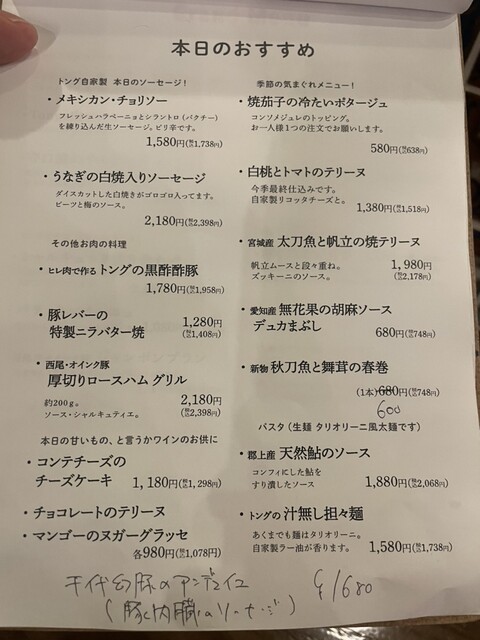 本日のおすすめ
トング自家製 本日のソーセージ!
・メキシカン・チョリソー
フレッシュハラペーニョとシラントロ(パクチー)
を練り込んだ生ソーセージ。ピリ辛です。
1,580円(税込1,738円)
・うなぎの白焼入りソーセージ
ダイスカットした白焼きがゴロゴロ入ってます。
ビーツと梅のソース。
2,180円(税込2,398円)
その他お肉の料理
・ヒレ肉で作るトングの黒酢酢豚
1,780円(税込1,958円)
・豚レバーの
特製ニラバター焼
1,280円
(税込1,408円)
・西尾・オインク豚
厚切りロースハム グリル
約200g。
ソース・シャルキュティエ。
2,180円
(税込2,398円)
本日の甘いもの、と言うかワインのお供に
・コンテチーズの
チーズケーキ 1,180円(税込1,298円)
・チョコレートのテリーヌ
・マンゴーのヌガーグラッセ
各980円(税込1,078円)
季節の気まぐれメニュー!
・焼茄子の冷たいポタージュ
コンソメジュレのトッピング。
お一人様1つの注文でお願いします。
580円(税込638円)
・白桃とトマトのテリーヌ
今季最終仕込みです。
自家製リコッタチーズと。
1,380円(税込1,518円)
・宮城産 太刀魚と帆立の焼テリーヌ
帆立ムースと段々重ね。
ズッキーニのソース。
1,980円
(税込2,178円)
・愛知産 無花果の胡麻ソース
デュカまぶし 680円(税込748円)
・新物 秋刀魚と舞茸の春巻
(1本)680円(税込748円)
600
パスタ(生麺 タリオリーニ風太麺です)
・郡上産 天然鮎のソース
コンフィにした鮎を
すり潰したソース
1,880円(税込2,068円)
・トングの 汁無し担々麺
あくまでも麺はタリオリーニ。
自家製ラー油が香ります。
1,580円(税込1,738円)
千代幻豚のアンデュイエ ¥1680
(豚と内臓のソーセージ)